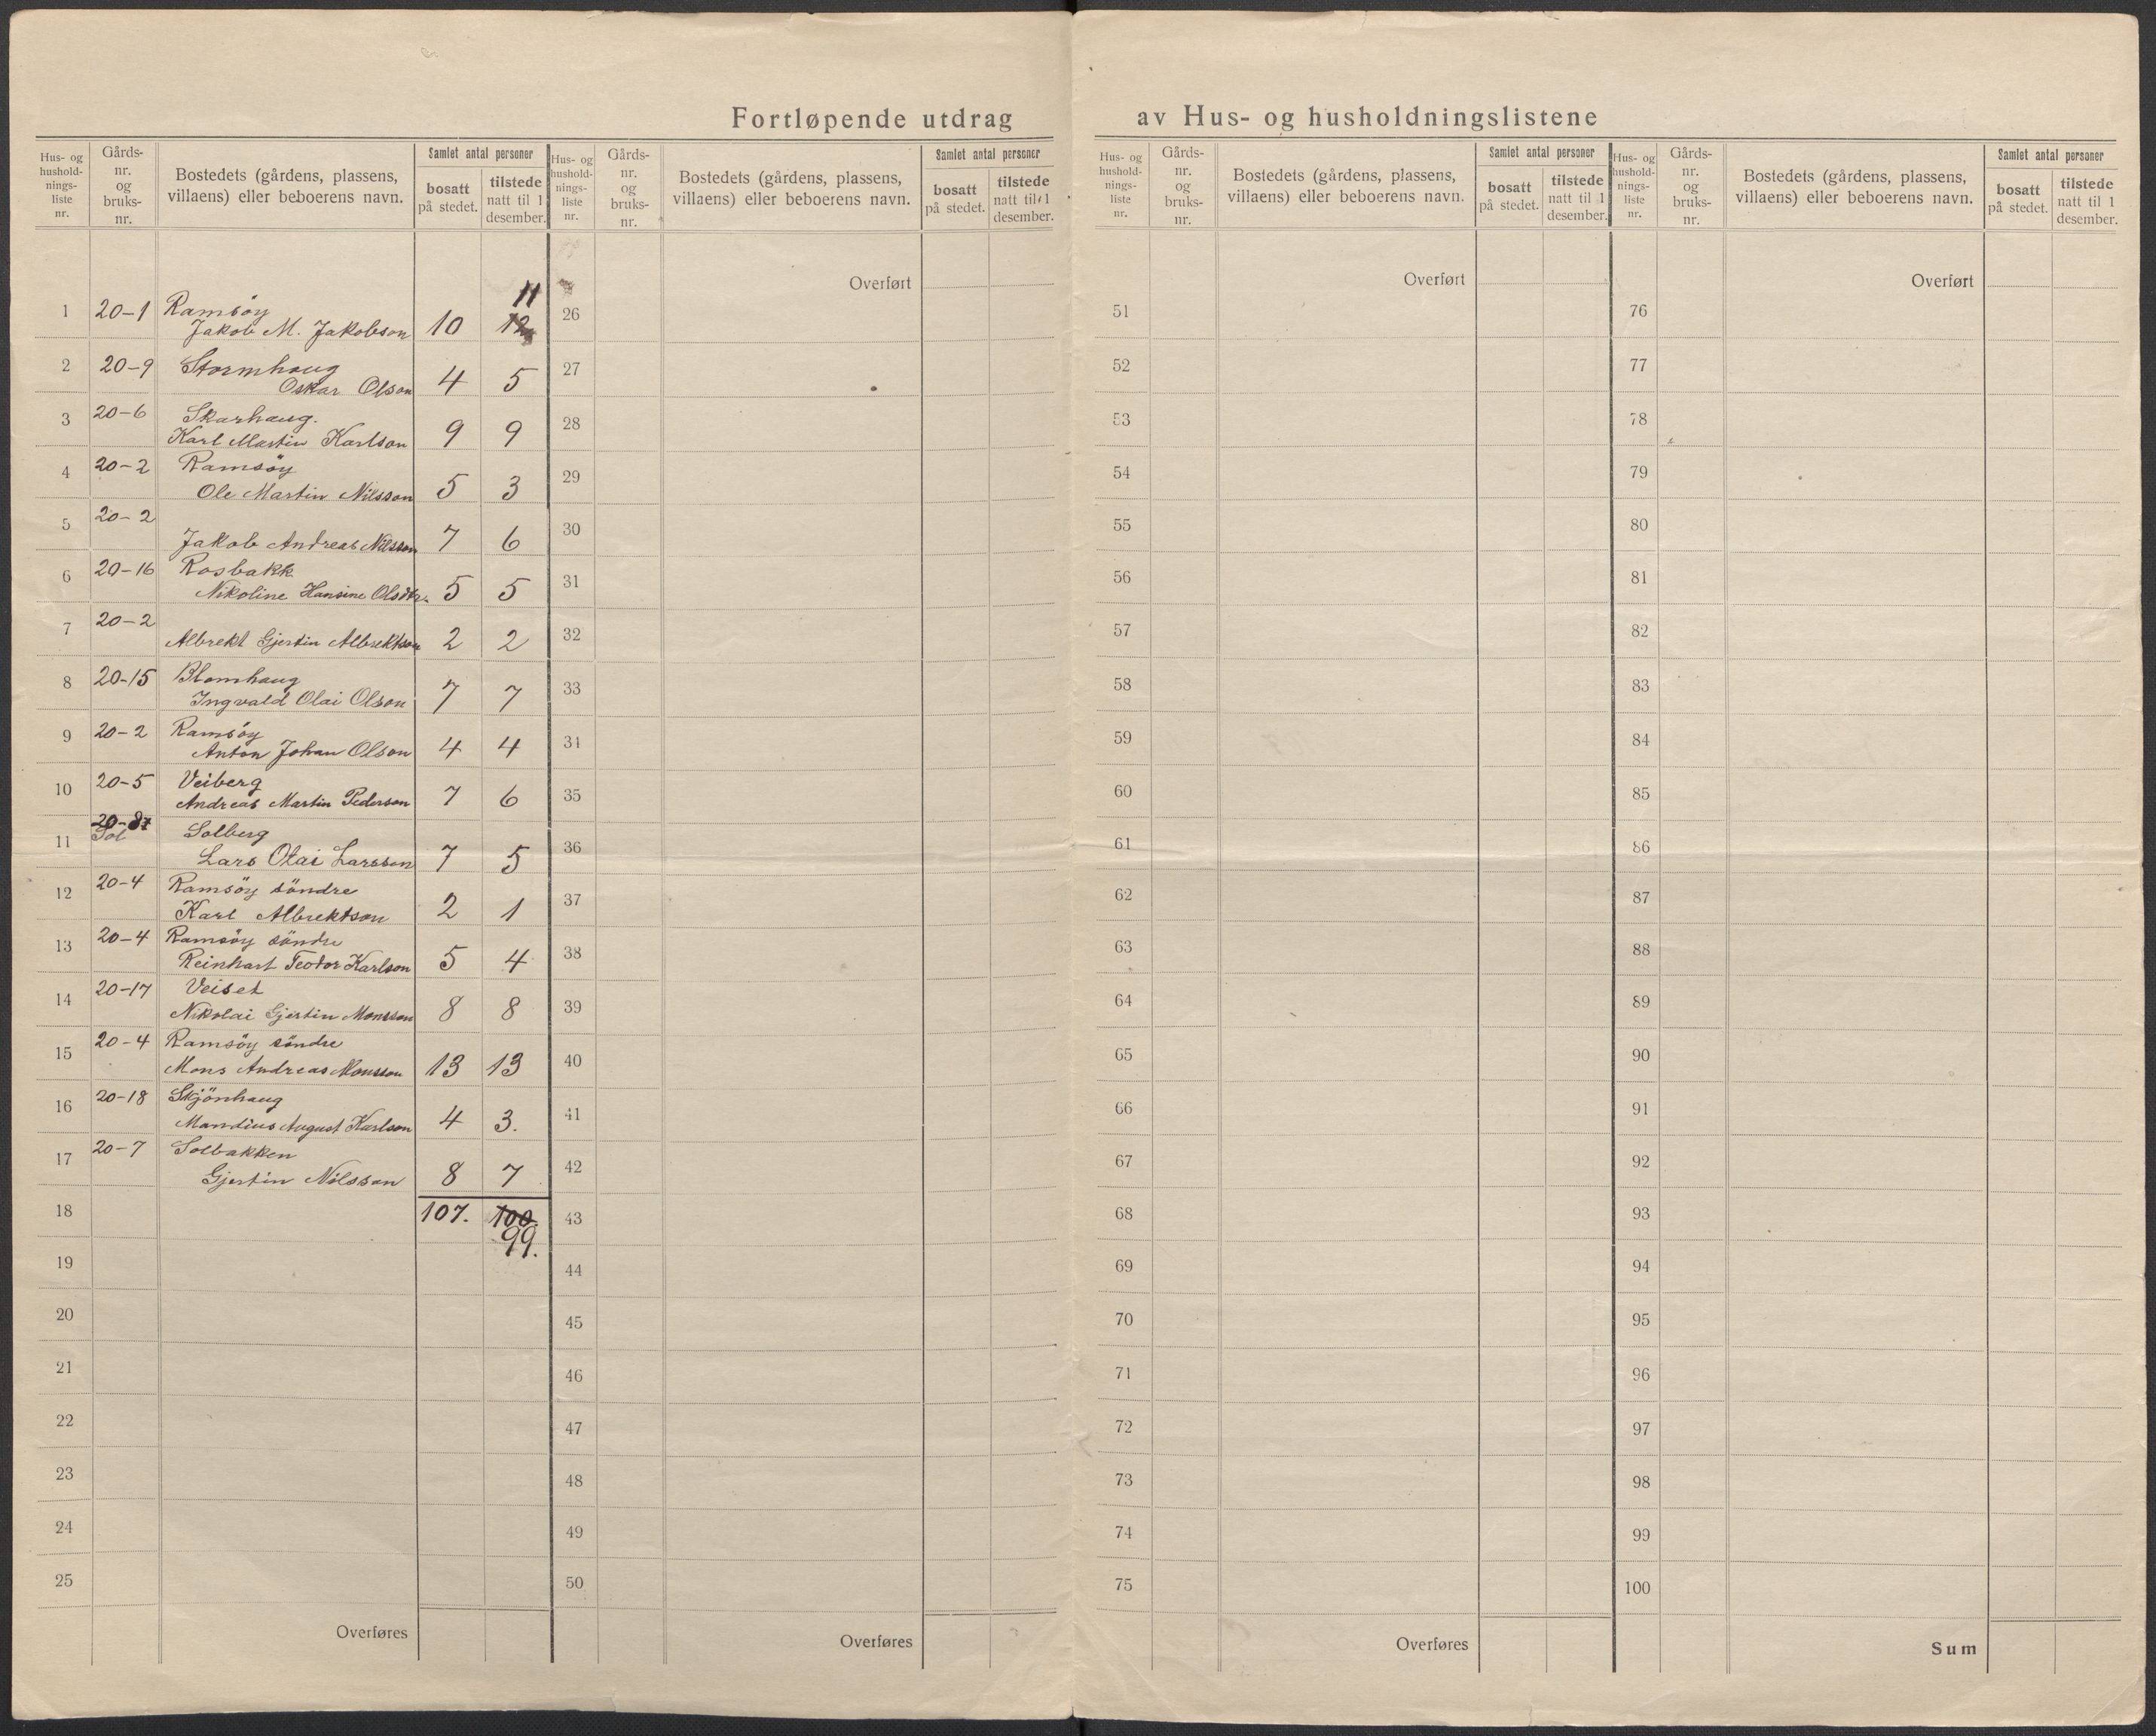 Fortløpende utdrag av Hus- og husholdningslistene
Hus- og hushold- nings- liste nr.
Gårds- nr. og bruks- nr.
Bostedets (gårdens, plassens, villaens) eller beboerens navn.
Samlet antal personer
bosatt på stedet.
tilstede natt til 1 desember.
1 20-1 Ramsöy
Jakob M. Jakobson 10 12 11
2 20-9 Stormhaug
Oskar Olson 4 5
3 20-6 Skarhaug.
Karl Martin Karlson 9 9
4 20-2 Ramsöy
Ole Martin Nilsson 5 3
5 20-2
Jakob Andreas Nilsson 7 6
6 20-16 Rosbakk
Nikoline Hansine Olsdtr. 5 5
7 20-2
Albrekt Gjertin Albrektson 2 2
8 20-15 Blomhaug
Ingvald Olai Olson 7 7
9 20-2 Ramsöy
Anton Johan Olson 4 4
10 20-5 Veiberg
Andreas Martin Pederson 7 6
11 Sol Solberg
Lars Olai Larsson 7 5
12 20-4 Ramsöy söndre
Karl Albrektson 2 1
13 20-4 Ramsöy söndre
Reinhart Teodor Karlson 5 4
14 20-17 Veiset
Nikolai Gjertin Monsson 8 8
15 20-4 Ramsöy söndre
Mons Andreas Monsson 13 13
16 20-18 Skjönhaug
Mandius August Karlson 4 3.
17 20-7 Solbakken
Gjertin Nilsson 8 7
18 107. 100.
99.
19
20
21
22
23
24
25
Overføres
Hus- og hushold- nings- liste nr.
Gårds- nr. og bruks- nr.
Bostedets (gårdens, plassens, villaens) eller beboerens navn.
Samlet antal personer
bosatt på stedet.
tilstede natt til 1 desember.
Overført
26
27
28
29
30
31
32
33
34
35
36
37
38
39
40
41
42
43
44
45
46
47
48
49
50
Overføres
Hus- og hushold- nings- liste nr.
Gårds- nr. og bruks- nr.
Bostedets (gårdens, plassens, villaens) eller beboerens navn.
Samlet antal personer
bosatt på stedet.
tilstede natt til 1 desember.
Overført
51
52
53
54
55
56
57
58
59
60
61
62
63
64
65
66
67
68
69
70
71
72
73
74
75
Overføres
Hus- og hushold- nings- liste nr.
Gårds- nr. og bruks- nr.
Bostedets (gårdens, plassens, villaens) eller beboerens navn.
Samlet antal personer
bosatt på stedet.
tilstede natt til 1 desember.
Overført
76
77
78
79
80
81
82
83
84
85
86
87
88
89
90
91
92
93
94
95
96
97
98
99
100
Sum